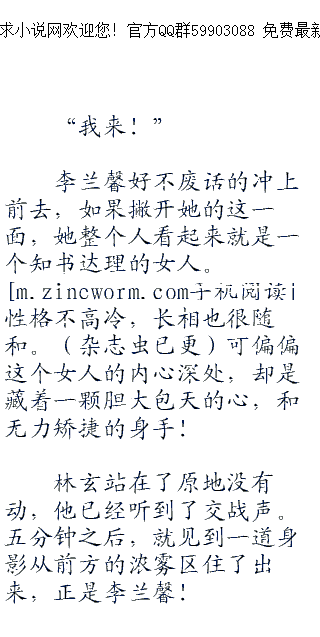 求小说网欢迎您！官方QQ群59903088 免费最新
“我来！”
李兰馨好不废话的冲上
前去，如果撇开她的这一
面，她整个人看起来就是一
个知书达理的女人。
[m.zincworm.com手机阅读i
性格不高冷，长相也很随
和。（杂志虫已更）可偏偏
这个女人的内心深处，却是
藏着一颗胆大包天的心，和
无力矫捷的身手！
林玄站在了原地没有
动，他已经听到了交战声。
五分钟之后，就见到一道身
影从前方的浓雾区住了出
来，正是李兰馨！